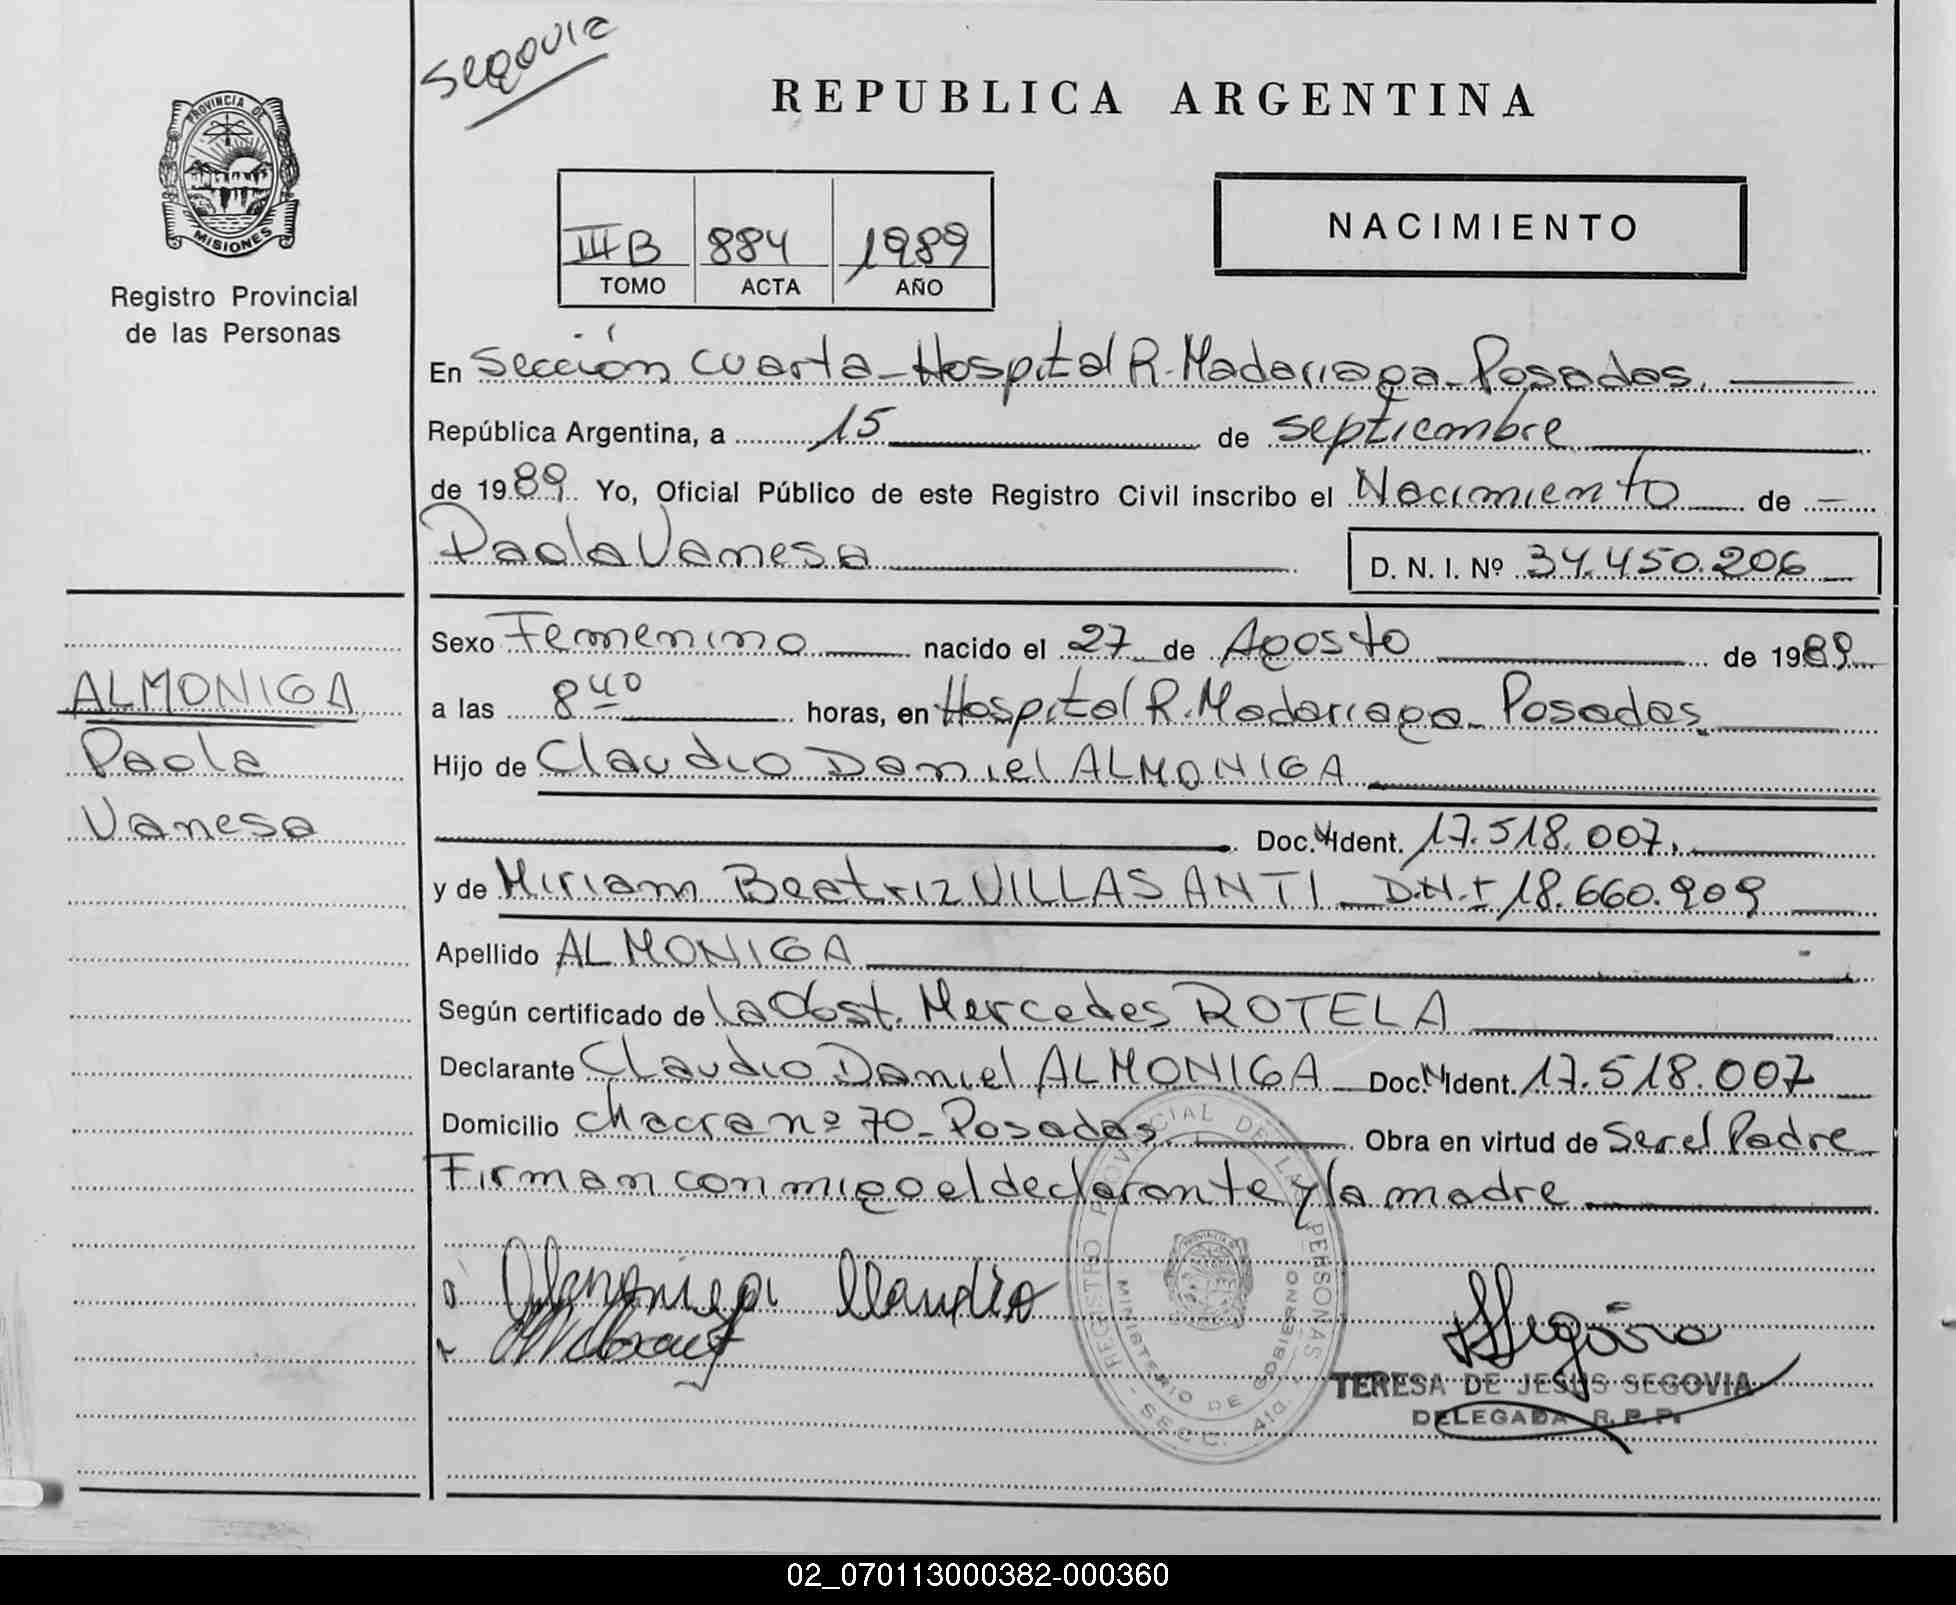 Segovia
REPUBLICA ARGENTINA
PROVINCIA DE
MISIONES
Registro Provincial
de las Personas
NACIMIENTO
III B 884 1989
TOMO ACTA AÑO
En Sección cuarta - Hospital R. Madariaga - Posadas.
República Argentina, a 15 de septiembre
de 1989. Yo, Oficial Público de este Registro Civil inscribo el Nacimiento de
Paola Vanesa
D. N. I. Nº 34.450.206
ALMONIGA
Paola
Vanesa
Sexo Femenino nacido el 27 de Agosto de 1989
a las 8 40 horas, en Hospital R. Madariaga - Posadas.
Hijo de Claudio Daniel ALMONIGA
Doc. N Ident. 17.518.007.
y de Miriam Beatriz VILLASANTI - D.N.I 18.660.909
Apellido ALMONIGA
Según certificado de la Obst. Mercedes ROTELA
Declarante Claudio Daniel ALMONIGA Doc. N Ident. 17.518.007
Domicilio chacra nº 70 - Posadas Obra en virtud de Ser el Padre
Firman conmigo el declarante y la madre
Almoniga Claudio
REGISTRO PROVINCIAL DE LAS PERSONAS
MINISTERIO DE GOBIERNO
- SECC. 4ta. -
PROVINCIA DE
Segovia
TERESA DE JESUS SEGOVIA
DELEGADA R. P. P.
02_070113000382-000360